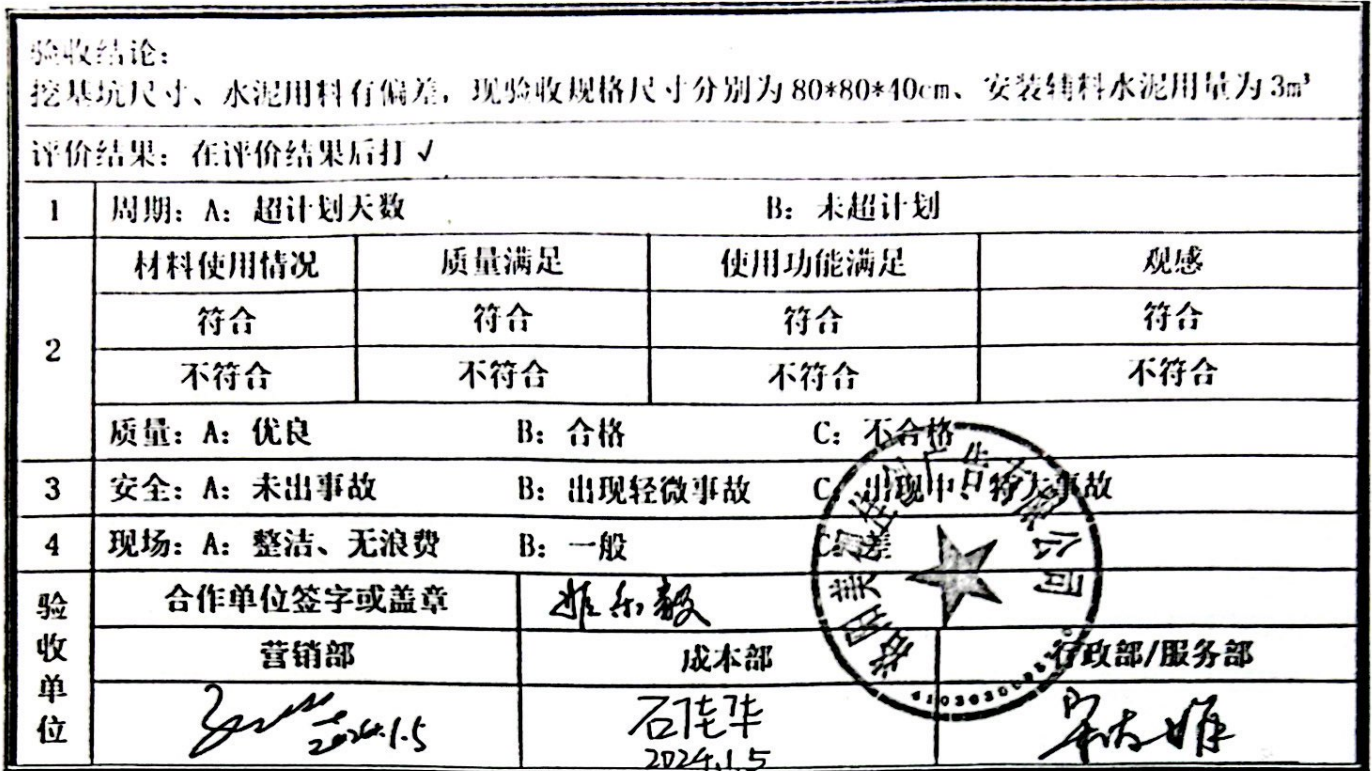 验收结论：
挖基坑尺寸、水泥用料有偏差，现验收规格尺寸分别为 80*80*40cm、安装辅料水泥用量为 3m³
评价结果：在评价结果后打 √
1 周期：A：超计划天数 B：未超计划
2
材料使用情况 质量满足 使用功能满足 观感
符合 符合 符合 符合
不符合 不符合 不符合 不符合
质量：A：优良 B：合格 C：不合格
3 安全：A：未出事故 B：出现轻微事故 C：出现中、特大事故
4 现场：A：整洁、无浪费 B：一般 C：差
验收单位
合作单位签字或盖章
营销部 成本部 行政部/服务部
2024.1.5 石佳华
2024.1.5
广告有限公司